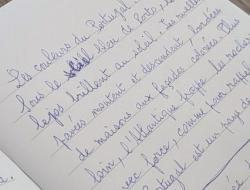 Les couleurs du Portugal.
Sous le soleil bleu de Porto, les
brillent au soleil. Les ruelles
pavées montent et descendent, bordées
de maisons aux façades colorées. Plus
loin, l'Atlantique frappe les rochers
avec force, comme pour rappeler
Portugal est un pays
a.